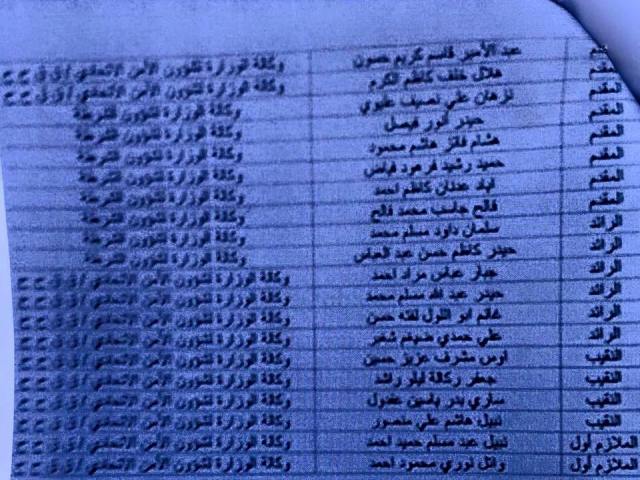 المقدم عبد الأمير قاسم كريم حسون وكالة الوزارة لشؤون الأمن الاتحادي / ق ق ح ح
المقدم هلال خلف كاظم الكرم وكالة الوزارة لشؤون الأمن الاتحادي / ق ق ح ح
المقدم نزهان علي نصيف عليوي وكالة الوزارة لشؤون الشرطة
المقدم حيدر أنور فيصل وكالة الوزارة لشؤون الشرطة
المقدم هشام فائز هاشم محمود وكالة الوزارة لشؤون الشرطة
المقدم حميد رشيد فرهود فياض وكالة الوزارة لشؤون الشرطة
المقدم اياد عدنان كاظم احمد وكالة الوزارة لشؤون الشرطة
الرائد فالح جاسب محمد فالح وكالة الوزارة لشؤون الشرطة
الرائد سلمان داود مسلم محمد وكالة الوزارة لشؤون الشرطة
الرائد حيدر كاظم حسن عبد العباس وكالة الوزارة لشؤون الشرطة
الرائد جبار عباس مراد احمد وكالة الوزارة لشؤون الأمن الاتحادي / ق ق ح ح
الرائد حيدر عبد الله مسلم محمد وكالة الوزارة لشؤون الأمن الاتحادي / ق ق ح ح
الرائد غانم ابو اللول لفته حسن وكالة الوزارة لشؤون الأمن الاتحادي / ق ق ح ح
الرائد علي حمدي ضيغم شعر وكالة الوزارة لشؤون الأمن الاتحادي / ق ق ح ح
النقيب اوس مشرف عزيز حسين وكالة الوزارة لشؤون الأمن الاتحادي / ق ق ح ح
النقيب جعفر ركالة ايلو راشد وكالة الوزارة لشؤون الأمن الاتحادي / ق ق ح ح
النقيب ساري بدر ياسين عفلول وكالة الوزارة لشؤون الأمن الاتحادي / ق ق ح ح
النقيب نبيل هاشم علي منصور وكالة الوزارة لشؤون الأمن الاتحادي / ق ق ح ح
الملازم أول نبيل عبد مسلم حميد احمد وكالة الوزارة لشؤون الأمن الاتحادي / ق ق ح ح
الملازم أول وائل نوري محمود احمد وكالة الوزارة لشؤون الأمن الاتحادي / ق ق ح ح